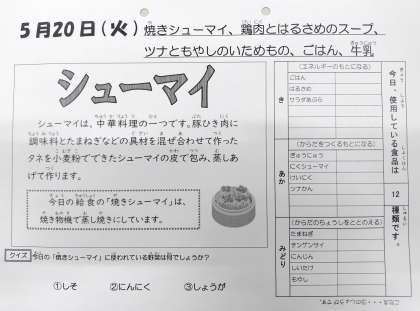 5月20日(火)
焼きシューマイ、鶏肉とはるさめのスープ、
ツナともやしのいためもの、ごはん、牛乳
シューマイ
シューマイは、中華料理の一つです。豚ひき肉に
調味料とたまねぎなどの具材を混ぜ合わせて作った
タネを小麦粉でできたシューマイの皮で包み、蒸しあ
げて作ります。
今日の給食の「焼きシューマイ」は、
焼き物機で蒸し焼きにしています。
クイズ
今日の「焼きシューマイ」に使われている野菜は何でしょうか?
①しそ ②にんにく ③しょうが
今日、使用している食品は
12
種類です。
き
(エネルギーのもとになる)
ごはん
はるさめ
サラダあぶら
あか
(からだをつくるもとになる)
ぎゅうにゅう
にくシューマイ
けいにく
ツナかん
みどり
(からだのちょうしをととのえる)
たまねぎ
チンゲンサイ
にんじん
しいたけ
もやし